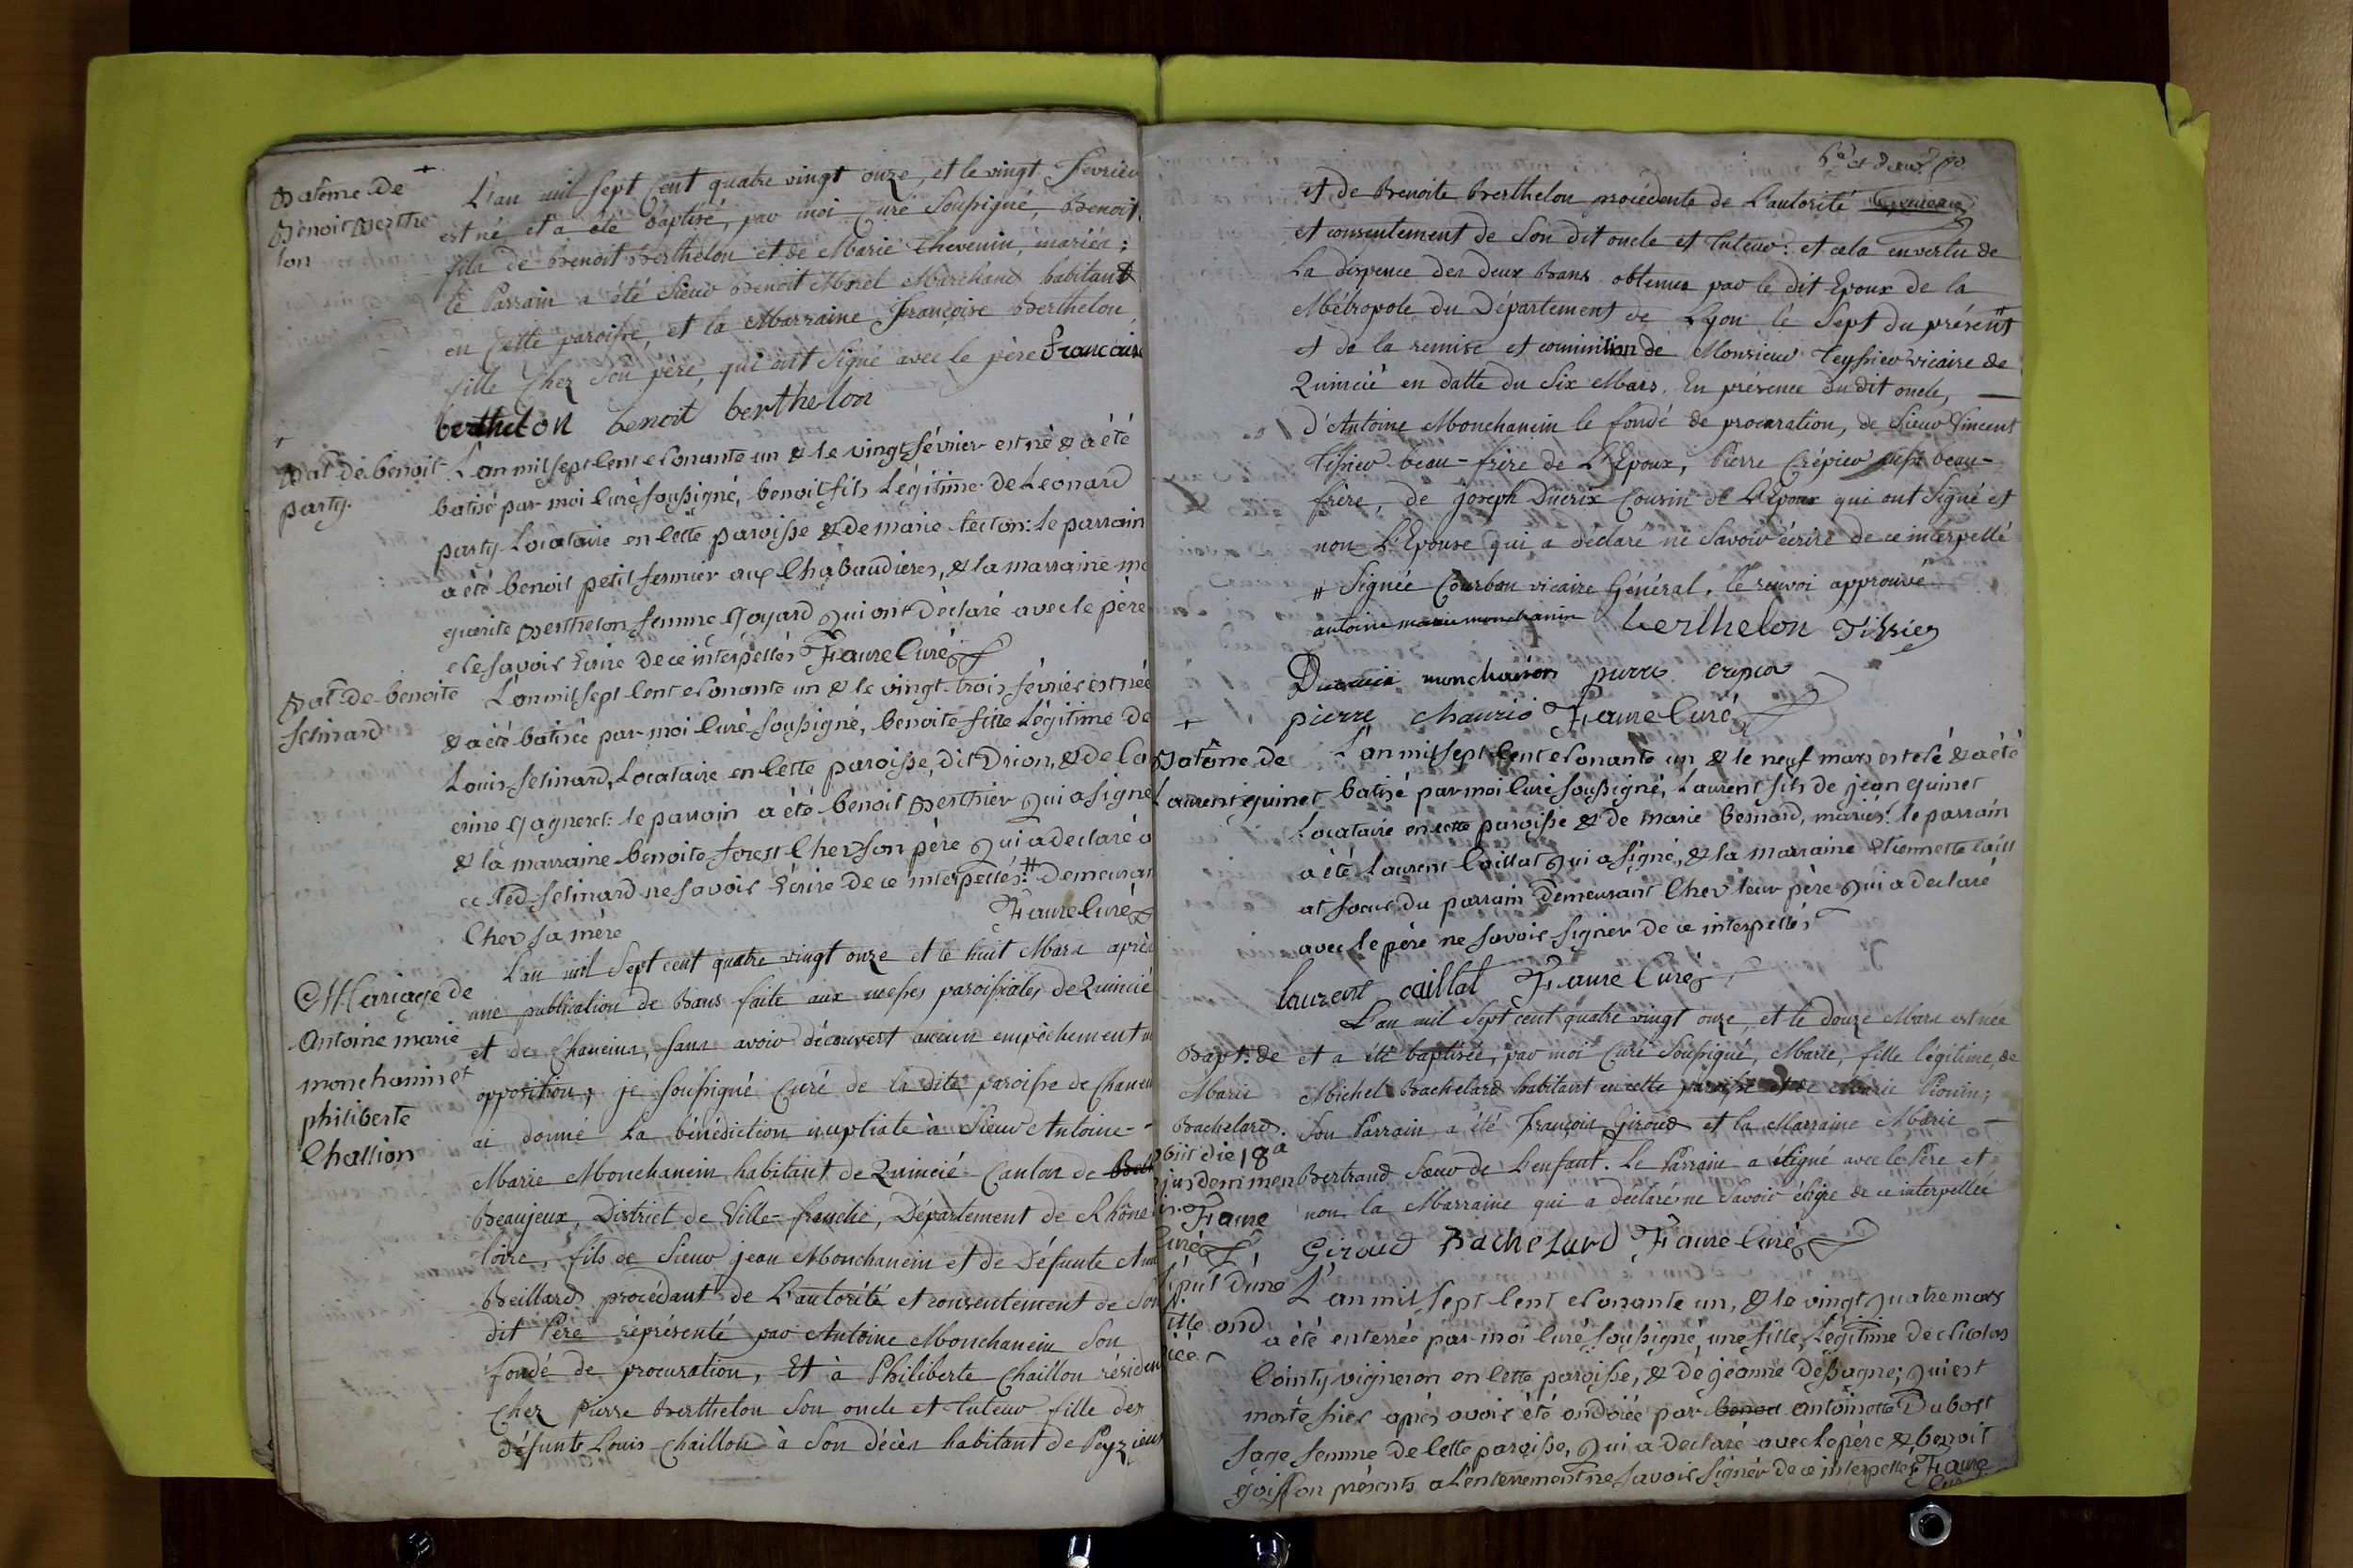 Batême de
Benoit Berthe
lon
L'an mil sept Cent quatre vingt onze, et le vingt Fevrier
est né et a été baptisé, par moi Curé Soussigné, Benoit,
fils de Benoit Berthelon et de Marie Thevenin, mariés;
le Parrain a été Sieur Benoit Morel Marchand habitant
en Cette paroisse, et la Marraine Françoise Berthelon,
fille Chez Son père, qui ont Signé avec le père francoise
berthelon benoit berthelon
Bat. de benoit
party.
L'an mil sept Cent et nonante un & le vingt février est né & a été
batisé par moi Curé soussigné, benoit fils Légitime de Leonard
party Locataire en Cette paroisse & de marie tecton: le parrain
a été benoit petit fermier aux Chabaudieres, & la marraine ma
guerite Berthelon femme Goyard qui ont déclaré avec le père
ne savoir écrire de ce interpellés Faure Curé
Bat. de benoite
felinard
L'an mil sept Cent et nonante un & le vingt-trois février est née
& a été batisée par moi Curé soussigné, benoite fille Légitime de
Louis felinard, Locataire en Cette paroisse, dit Drion, & de Ca
erine Gagneret: le parrain a été benoit Berthier qui a signé
& la marraine benoite forest Chez son père qui a declaré a
ec led. felinard ne savoir écrire de ce interpellés. # Demeuran
Faure Curé
Chez sa mère
Mariage de
Antoine marie
monchanin et
philiberte
Challion
L'an mil Sept cent quatre vingt onze et le huit Mars après
une publication de Bans faite aux messes paroissiales de Quincié
et de Chaneins, sans avoir découvert aucun empêchement ni
opposition; je soussigné Curé de la dite paroisse de Chanein
ai donné la bénédiction nuptiale à Sieur Antoine-
Marie Monchanein habitant de Quincié Canton de
Beaujeux, District de Ville-franche, Département de Rhône
loire, fils de Sieur jean Monchanein et de Défunte Ann
Beillard procédant de L'autorité et consentement de Son
dit Père réprésenté par Antoine Monchanein Son
fondé de procuration, Et à Philiberte Chaillon résiden
Chez Pierre Berthelon Son oncle et tuteur fille des
défunts Louis Chaillon à Son décès habitant de Peyzieux
et de Benoite Berthelon procédente de L'autorité
et consentement de Son dit oncle et tuteur: et cela en vertu de
La dispence des deux Bans obtenus par le dit Epoux de la
Métropole du Département de Lyon le Sept du présent #
et de la remise et commission de Monsieur Teyssier vicaire de
Quincié en datte du Six Mars. En présence du dit oncle,
d'Antoine Monchanein le fondé de procuration, de Sieur Vincent
Tissier beau-frère de L'Epoux, Pierre Crépier aussi beau-
frère, de joseph Ducrix Cousin de L'Epoux qui ont Signé et
non L'Epouse qui a déclaré ne Savoir écrire de ce interpellé
# Signée Courbon vicaire Général. le renvoi approuvé
antoine marie monchanin berthelon Tissier
monchanin pierre
pierre Faure Curé
Batême de
Laurent guinet
L'an mil sept Cent et nonante un & le neuf mars est né & a été
batisé par moi Curé soussigné, Laurent fils de jean guinet
Locataire en cette paroisse & de marie bernard, mariés: le parrain
a été Laurent Caillat qui a signé, & la marraine Etiennette Caill
at soeur du parrain Demeurant Chez leur père qui a declaré
avec le père ne savoir signer de ce interpellés
laurent caillat Faure Curé
Bapt: de
Marie
Bachelard.
obiit die 18a
ejusdem men
is. Faure
Curé
L'an mil Sept cent quatre vingt onze, et le douze Mars est née
et a été baptisée, par moi Curé Soussigné, Marie, fille légitime, de
Michel Bachelard habitant en cette paroisse et de Marie Pionin;
Son Parrain a été François Giroud et la Marraine Marie
Bertrand Soeur de L'enfant. Le Parrain a signé avec le Père et
non la Marraine qui a déclaré ne Savoir écrire de ce interpellée
Giroud Bachelard Faure Curé
Sépul. d'une
fille ond
oiée
L'an mil sept Cent et nonante un, & le vingt quatre mars
a été enterrée par moi Curé soussigné, une fille Légitime de Nicolas
Cointy vigneron en Cette paroisse, & de jeanne dessagne; qui est
morte hier après avoir été ondoiée par benoit antoinette Dubost
sage femme de Cette paroisse, qui a declaré avec le père & benoit
Goisson présents a L'enterrement ne savoir signer de ce interpellés Faure
Curé